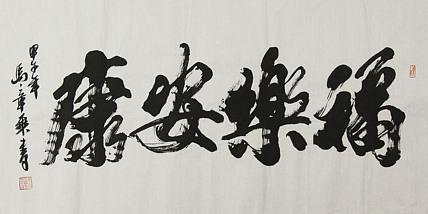 福樂安康
甲午年
馬章乘書